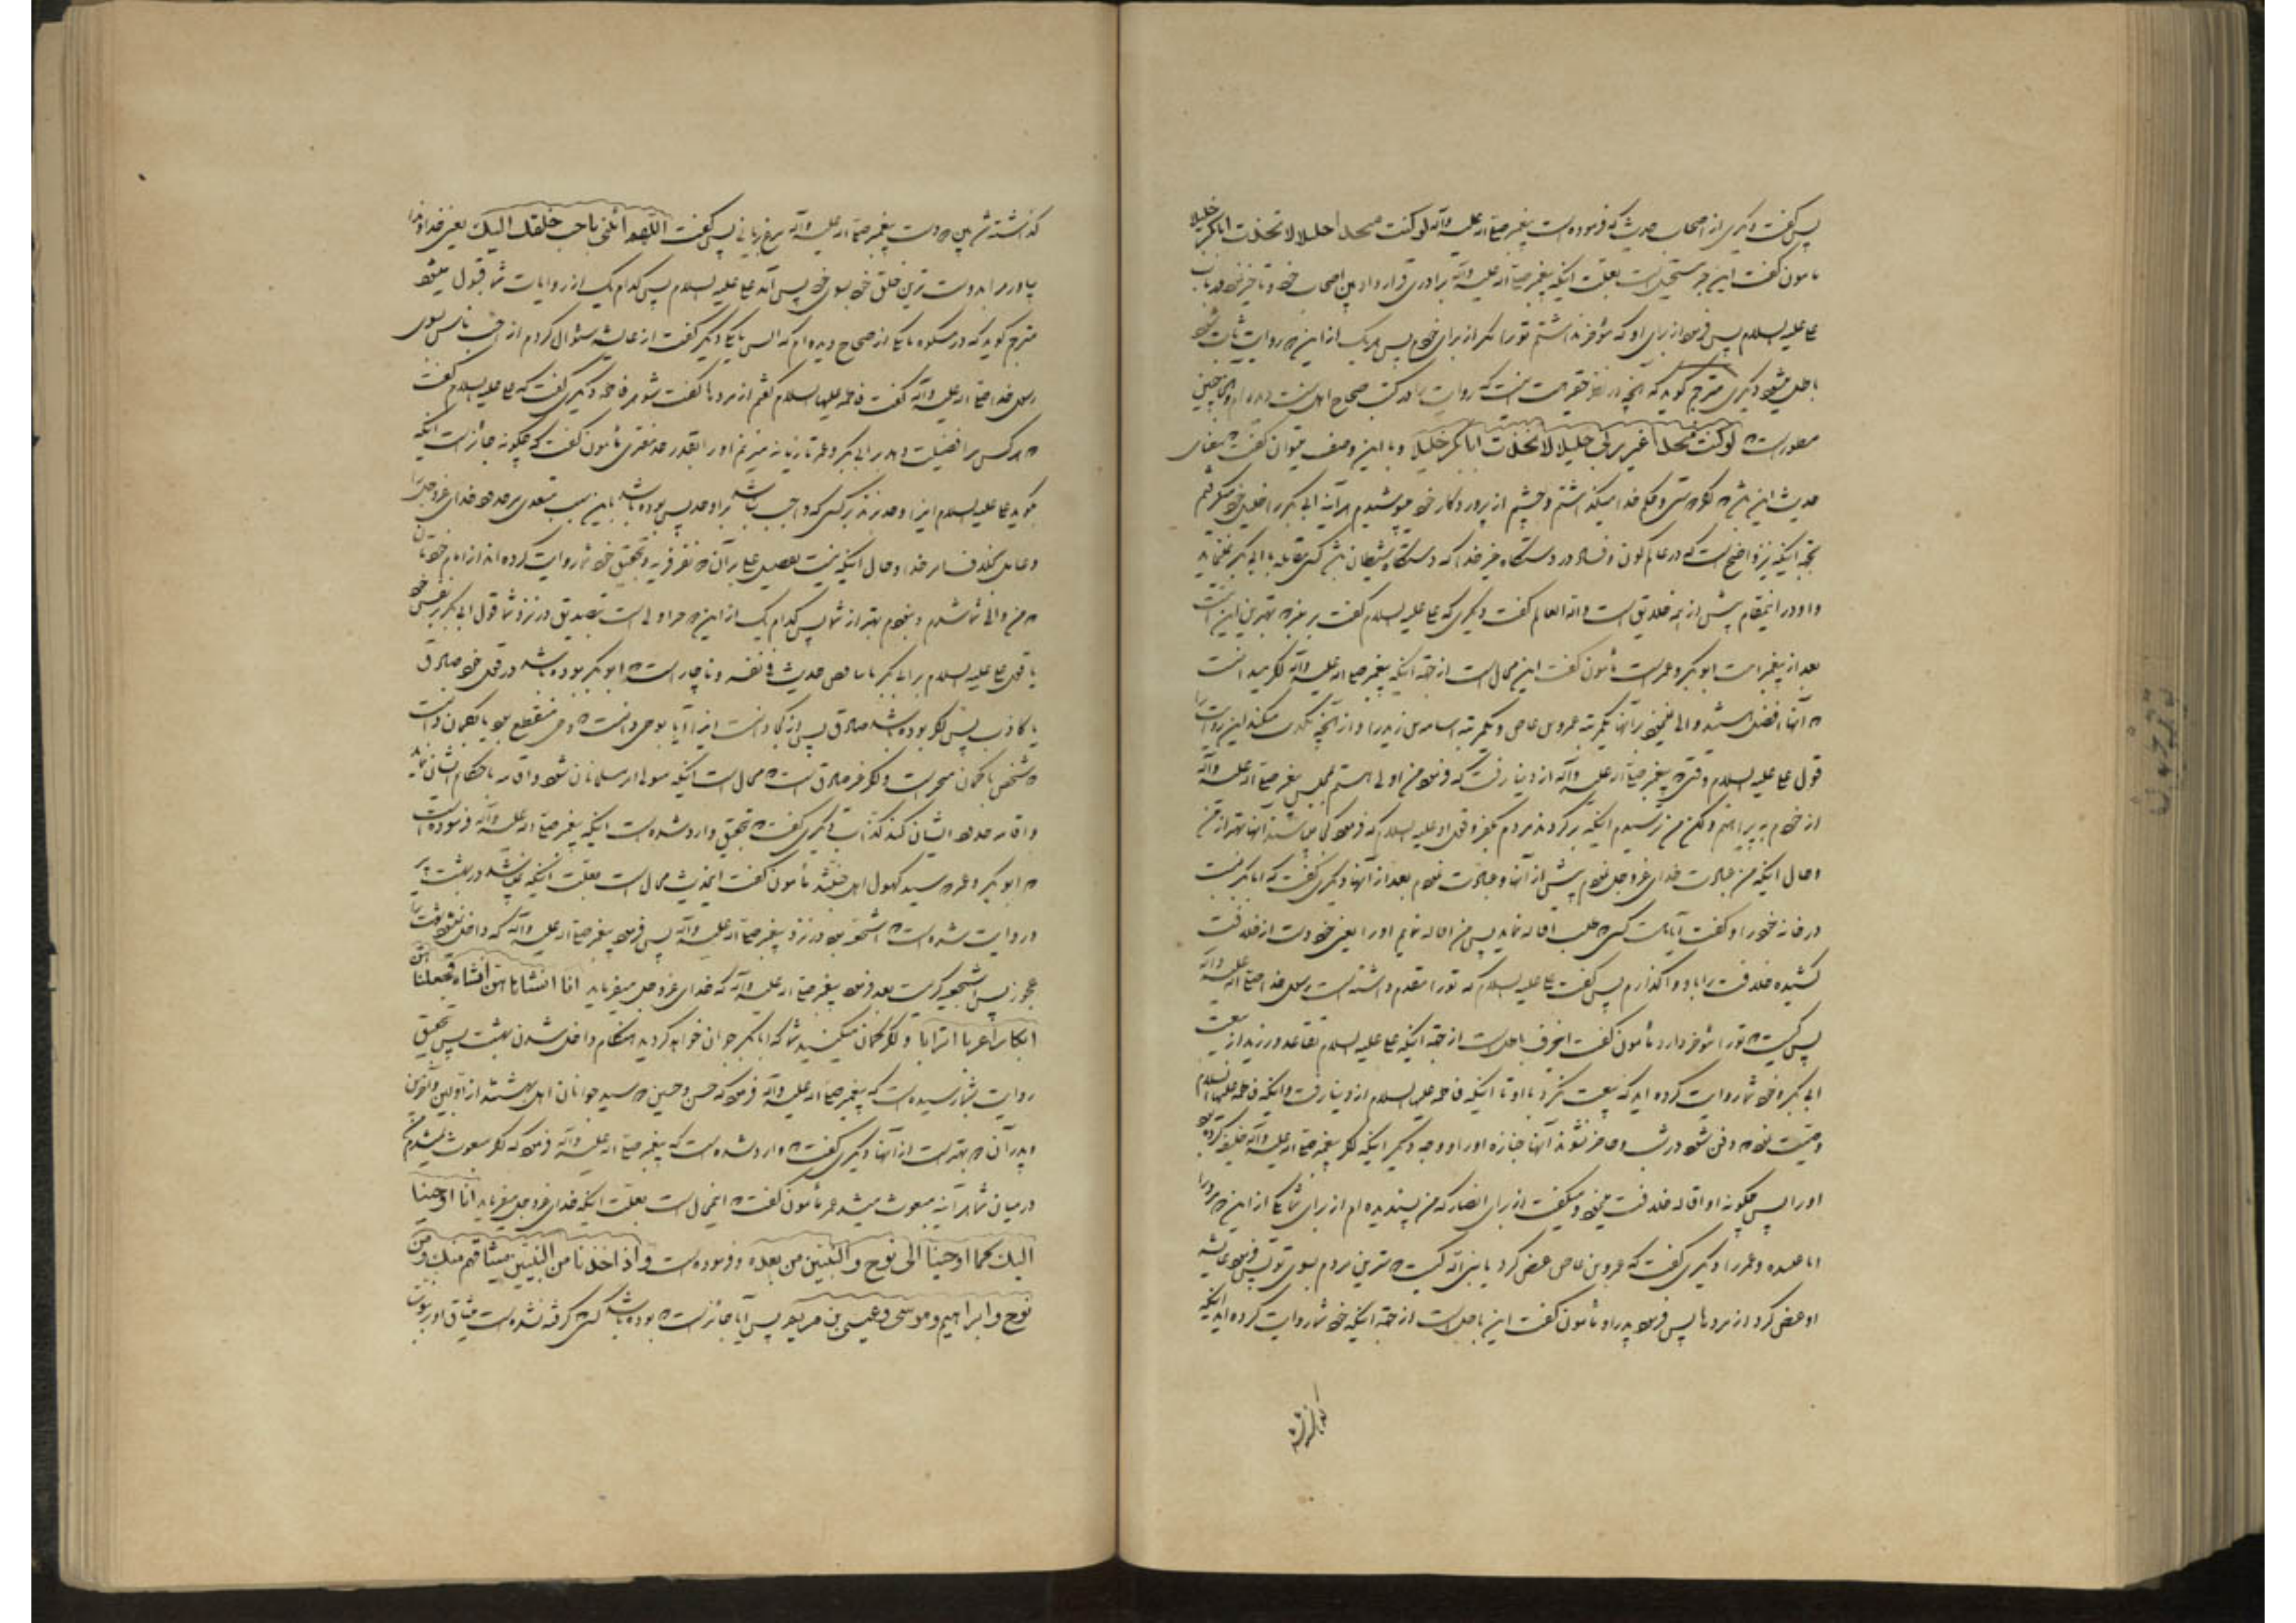 پس گفت دیگری از اصحاب حدیث که فرموده است پیغمبر صلی الله علیه وآله لو کنت متخذا خلیلا لاتخذت ابابکر خلیلا
مامون گفت این خبر مستحیل است بعلت اینکه پیغمبر صلی الله علیه وآله برادری قرار داد بین اصحاب خود و تاخیر نمود در باب
علی علیه السلام پس فرمود از برای او که مؤخر نداشتم تو را مگر از برای خودم پس هر یک از این دو روایت ثابت شود
باطل میشود دیگری مترجم گوید که آنچه در نظر حقیر است اینست که روایت را در کتب صحاح اهل سنت دیده ام و چنین
مسطور است که لو کنت متخذا غیر ربی خلیلا لاتخذت ابابکر خلیلا و با این وصف میتوان گفت که معنای
حدیث این باشد که اگر دستی و حکم خدا میگذاشتم و چشم از پروردگار خود میپوشیدم هر آینه ابی بکر را خلیل خود میگرفتم
نتیجه اینکه نیز واضح است که در عالم کون و فساد در دستگاه غیر خدا که دستگاه شیطان باشد کسی مقابله با ابی بکر نمینماید
و او در اینمقام پیش از همه خلایق است والله العالم گفت دیگری که علی علیه السلام گفت بر منبر که بهترین این امت
بعد از پیغمبر است ابوبکر و عمر است مأمون گفت این محال است از جهة اینکه پیغمبر صلی الله علیه وآله اگر میدانست
که آنها افضل هستند والی نمینمود بر آنها یکمرتبه عمرو بن عاص و یکمرتبه اسامة بن زید را و از آنچه تکذیب میکند این روایت را
قول علی علیه السلام وقتی که پیغمبر صلی الله علیه وآله از دنیا رفت که فرمود من اولی هستم بمجلس پیغمبر صلی الله علیه وآله
از خودم به پیراهنم ولکن من ترسیدم اینکه برگردند مردم بکفر و قول او علیه السلام که فرمود کی میباشند آنها بهتر از من
و حال اینکه من عبادت خدای عزوجل نمودم پیش از آنها و عبادت نمودم بعد از آنها دیگری گفت که ابابکر بست
در خانه خود را و گفت آیا هست کسی که طلب اقاله نماید پس من اقاله نمایم او را یعنی خود دست از خلافت
کشیده خلافت را باو واگذارم پس گفت علی علیه السلام که تو را مقدم داشته است رسول خدا صلی الله علیه وآله
پس کیست که تو را مؤخر دارد مأمون گفت اینحرف باطل است از جهة اینکه علی علیه السلام تقاعد ورزید از بیعت
ابی بکر و خود شما روایت کرده اید که بیعت نکرد با او تا اینکه فاطمه علیها السلام از دنیا رفت و اینکه فاطمه علیها السلام
وصیت نمود که دفن شود در شب و حاضر نشوند آنها جنازه او را و وجه دیگر اینکه اگر پیغمبر صلی الله علیه وآله خلیفه کرده بود
او را پس چگونه او اقاله خلافت مینمود و میگفت از برای انصار که من پسندیده ام از برای شما یکی از این دو مرد را
ابا عبیده و عمر را دیگری گفت که عمرو بن عاص عرض کرد یا نبی الله کیست دوست ترین مردم بسوی تو پس فرمود عایشه
او عرض کرد از مردها پس فرمود پدر او مأمون گفت این باطل است از جهة اینکه خود شما روایت کرده اید اینکه
گذاشته شد بین دو دست پیغمبر صلی الله علیه وآله مرغ بریانی پس گفت اللهم ائتنی باحب خلقک الیک یعنی خداوندا
بیاور مرا بدوست ترین خلق خود بسوی خود پس آمد علی علیه السلام پس کدام یک از روایات شما قبول میشود
مترجم گوید که در مشکوة یا یکی از صحاح دیده ام که انس یا یکی دیگر گفت از عایشه سئوال کردم از احب ناس بسوی
رسول خدا صلی الله علیه وآله گفت فاطمه علیها السلام گفتم از مردها گفت شوهر فاطمه دیگری گفت که علی علیه السلام گفت
که هر کس مرا فضیلت دهد بر ابی بکر و عمر تازیانه میزنم او را بقدر حد مفتری مأمون گفت که چگونه جائز است اینکه
بگوید علی علیه السلام این را و حد بزند بر کسی که واجب نباشد بر او حد پس بوده باشد باین سبب متعدی مر حدود خدای عزوجل را
و عامل بخلاف امر خدا و حال اینکه نیست تفضیل علی بر آن دو نفر فریه و بتحقیق خود شما روایت کرده اند از امام خودتان
که من والی شما شدم و نبودم بهتر از شما پس کدام یک از این دو مرد اولی است بتصدیق در نزد شما قول ابی بکر بر نفس خود
یا قول علی علیه السلام بر ابی بکر با تناقض حدیث فی نفسه و ناچار است که ابوبکر بوده باشد در قول خود صادق
یا کاذب پس اگر بوده باشد صادق پس از کجا دانست این را آیا بوحی دانست که وحی منقطع بود یا بگمان دانست
که شخص با گمان متحیر است و اگر غیر صادق است که محال است اینکه متولی امر مسلمانان شود و اقامه باحکام ایشان نماید
و اقامه حدود ایشان کند کذاب دیگری گفت که بتحقیق وارد شده است اینکه پیغمبر صلی الله علیه وآله فرموده است
که ابوبکر و عمر دو سید کهول اهل جنتند مأمون گفت اینحدیث محال است بعلت اینکه نمیباشد در بهشت پیر
در روایت شده است که اشجعیه بود در نزد پیغمبر صلی الله علیه وآله پس فرمود پیغمبر صلی الله علیه وآله که داخل نمیشود بهشت را
عجوز پس اشجعیه گریست بعد فرمود پیغمبر صلی الله علیه وآله که خدای عزوجل میفرماید انا انشاناهن انشاء فجعلناهن
ابکارا عربا اترابا و اگر گمان میکنید شما که ابابکر جوان خواهد گردید هنگام داخل شدن بهشت پس بتحقیق
روایت بشما رسیده است که پیغمبر صلی الله علیه وآله فرمود که حسن و حسین دو سید جوانان اهل بهشتند از اولین و آخرین
و پدر آن دو بهتر است از آنها دیگری گفت که وارد شده است که پیغمبر صلی الله علیه وآله فرمود که اگر مبعوث نمیشدم
در میان شما هر آینه مبعوث میشد عمر مأمون گفت که این محال است بعلت اینکه خدای عزوجل میفرماید انا اوحینا
الیک کما اوحینا الی نوح والنبیین من بعده و فرموده است و اذ اخذنا من النبیین میثاقهم منک ومن
نوح وابراهیم وموسی وعیسی بن مریم پس آیا جائز است که بوده باشد کسی که گرفته نشده است میثاق او بر نبوت